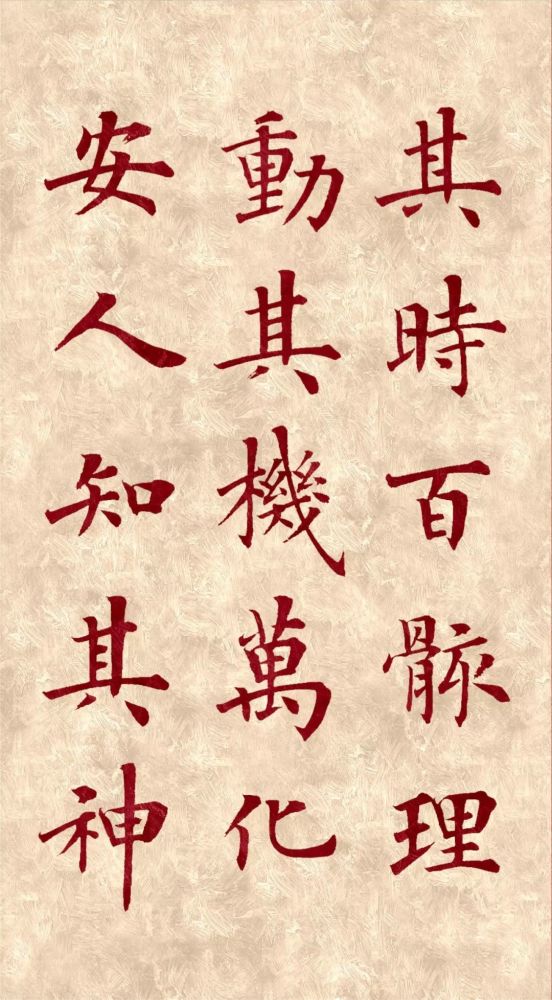 其時百骸理
動其機萬化
安人知其神